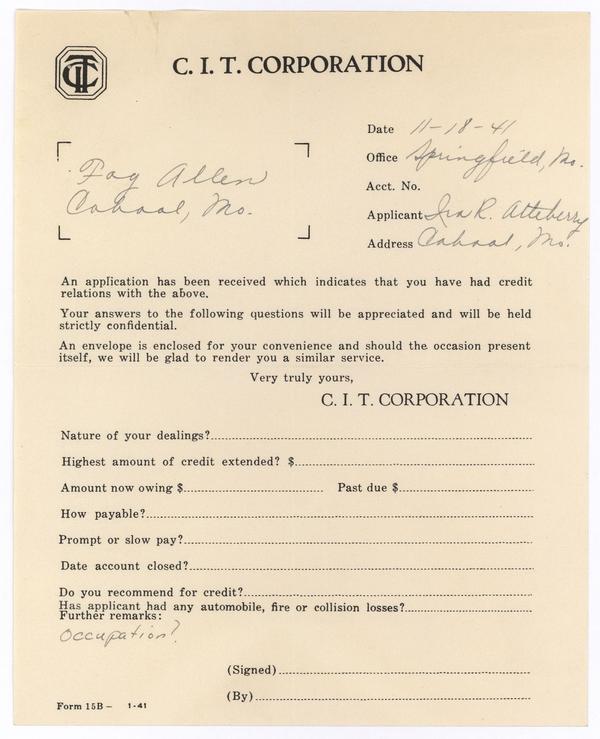 CIT
C. I. T. CORPORATION
Date 11-18-41
Office Springfield, Mo.
Acct. No.
Applicant Ira R. Atteberry
Address Cabool, Mo.
Foy Allen
Cabool, Mo.
An application has been received which indicates that you have had credit
relations with the above.
Your answers to the following questions will be appreciated and will be held
strictly confidential.
An envelope is enclosed for your convenience and should the occasion present
itself, we will be glad to render you a similar service.
Very truly yours,
C. I. T. CORPORATION
Nature of your dealings?
Highest amount of credit extended? $
Amount now owing $ Past due $
How payable?
Prompt or slow pay?
Date account closed?
Do you recommend for credit?
Has applicant had any automobile, fire or collision losses?
Further remarks:
Occupation?
(Signed)
(By)
Form 15B – 1-41